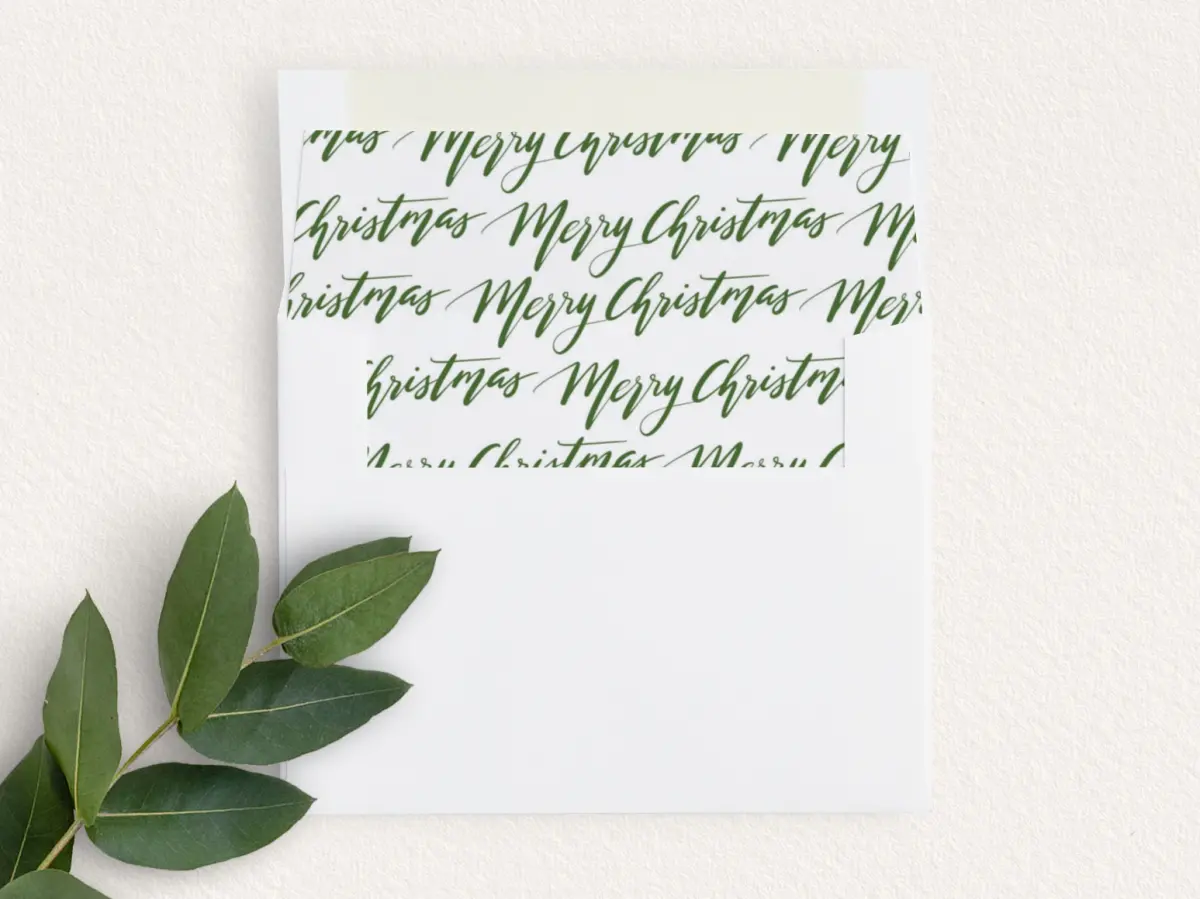 mas Merry Christmas Merry
Christmas Merry Christmas M
hristmas Merry Christmas Merr
hristmas Merry Christm
Merry Christmas Merry C